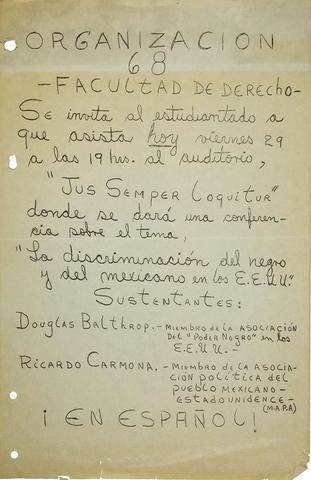 ORGANIZACION
68
-FACULTAD DE DERECHO-
SE invita al estudiantado a
que asista hoy viernes 29
a las 19 hrs. al auditorio,
"JUS SEMPER LOQUITUR"
donde se dará una conferen-
cia sobre el tema,
"La discriminación del negro
y del mexicano en los E.E.U.U."
SUSTENTANTES:
DOUGLAS BALTHROP.- MIEMBRO DE LA ASOCIACIÓN
DEL "PODER NEGRO" en los
E.E.U.U.-
RICARDO CARMONA.- MIEMBRO DE LA ASOCIA-
CIÓN POLÍTICA DEL
PUEBLO MEXICANO-
ESTADOUNIDENCE-
(M.A.P.A)
¡EN ESPAÑOL!